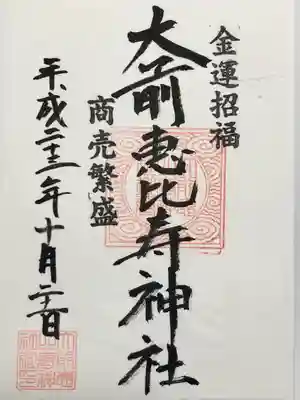 金運招福
大前恵比寿神社
商売繁盛
平成二十三年十月二十六日